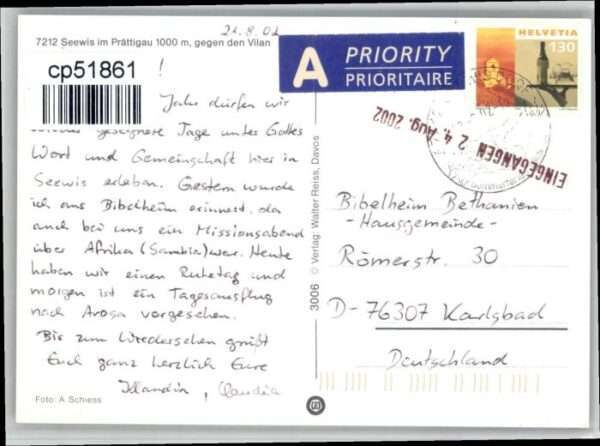 21.8.02
7212 Seewis im Prättigau 1000 m, gegen den Vilan
cp51861
!
Jahr dürfen wir
gesegnete Tage unter Gottes
Wort und Gemeinschaft hier in
Seewis erleben. Gestern wurde
ich ans Bibelheim erinnert, da
auch bei uns ein Missionsabend
über Afrika (Sambia) war. Heute
haben wir einen Ruhetag und
morgen ist ein Tagesausflug
nach Arosa vorgesehen.
Bis zum Wiedersehen grüßt
Euch ganz herzlich Eure
Claudia
Foto: A. Schiess
3006 © Verlag: Walter Reiss, Davos
A PRIORITY
PRIORITAIRE
HELVETIA
130
EINGEGANGEN 2 4. Aug. 2002
Bibelheim Bethanien
- Hausgemeinde -
Römerstr. 30
D-76307 Karlsbad
Deutschland